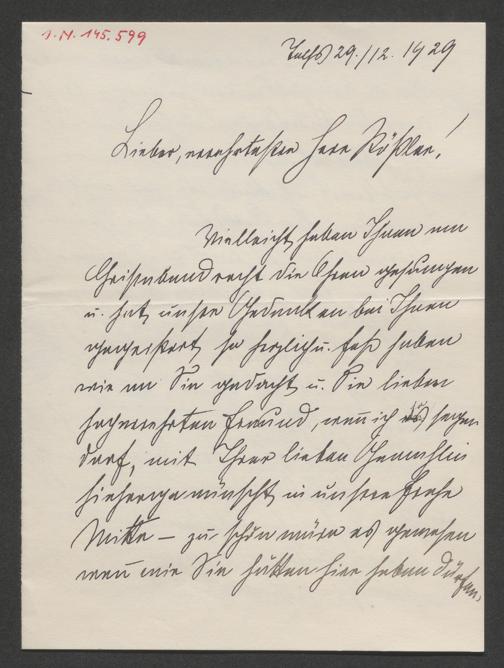 I.N. 145.599
Telfs 29./12. 1929
Lieber, verehrtester Herr Rößler!
Vielleicht haben Ihnen am
Christabend recht die Ohren gesungen
u. hat unser Gedanken bei Ihnen
gegeistert so herzlich u. fest haben
wir an Sie gedacht u. Sie lieber
hochverehrter Freund, wenn ich so sagen
darf, mit Ihrer lieben Gemahlin
hieher gewünscht in unsere frohe
Mitte — zu schön wäre es gewesen
wenn wir Sie hätten hier haben dürfen,